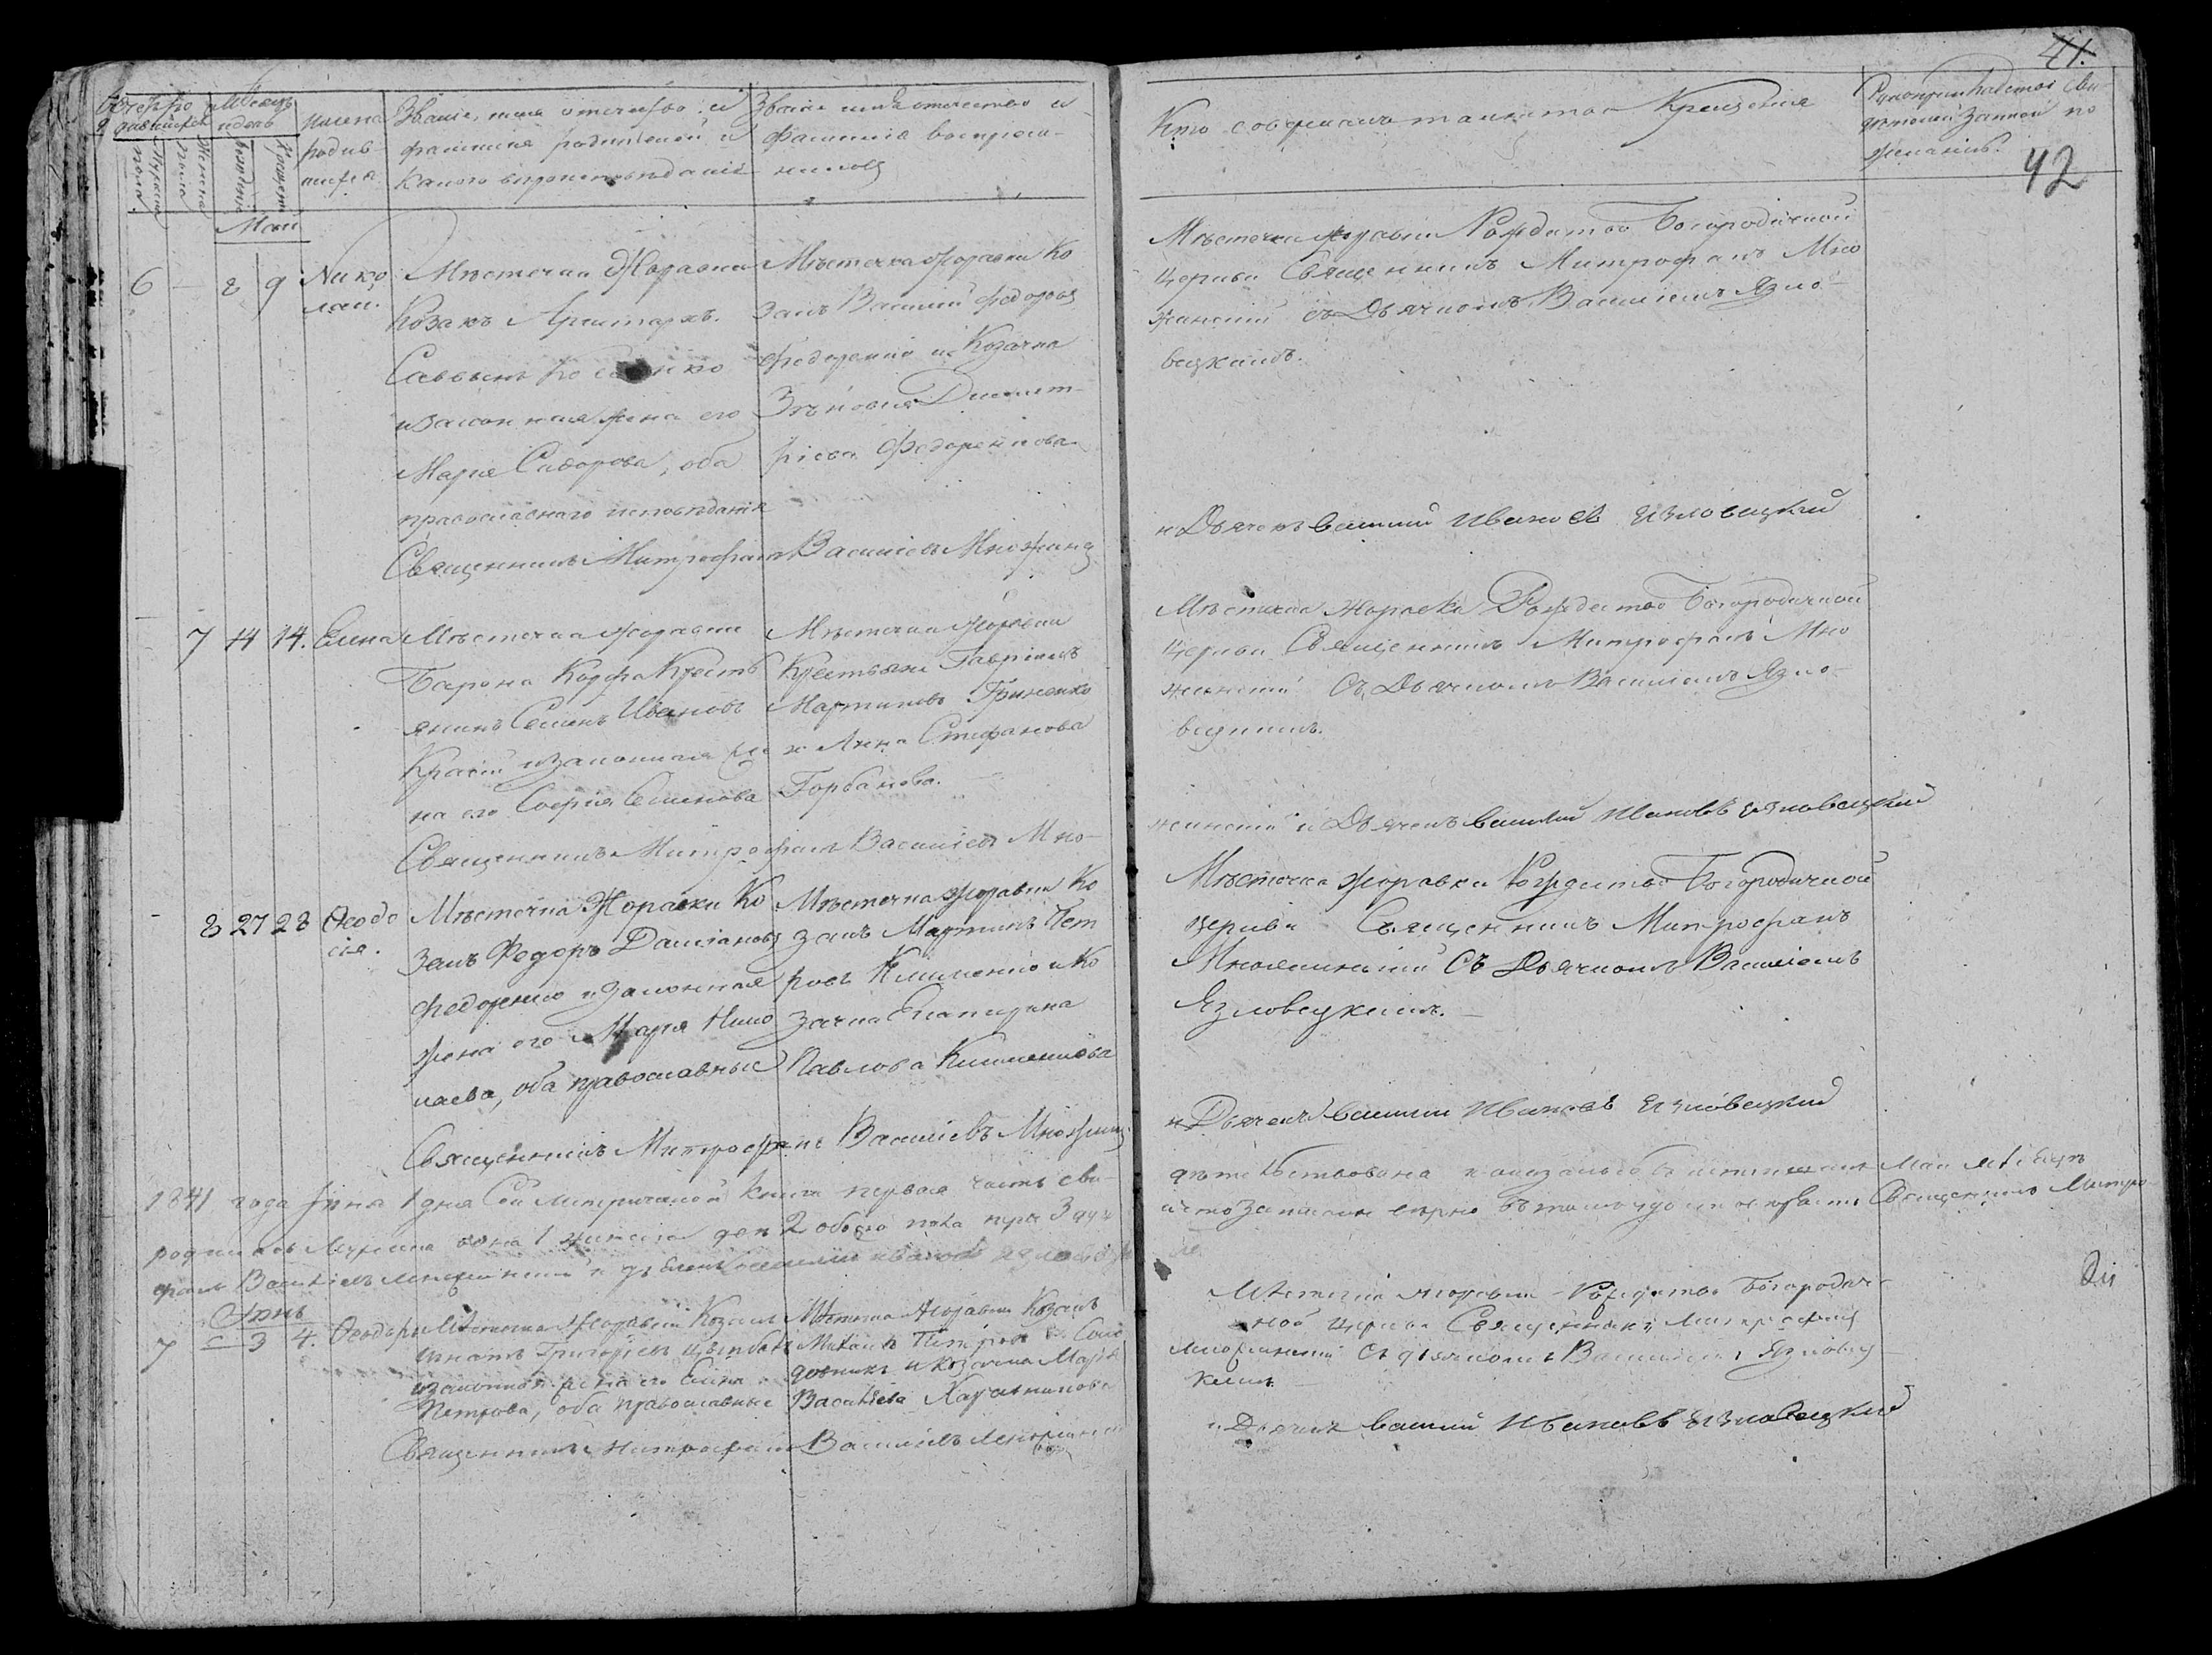 41.
42
Счетъ родившихся
Мѣсяцъ и день
Мужеска пола
Женска пола
рожденія
крещенія
Имена родив-
шихся
Званіе, имя отчество и
фамилія родителей и
какого вѣроисповѣданія
Званіе имя отчество и
фамилія воспріем-
никовъ
Кто совершалъ таинство Крещенія
Рукоприкладство сви-
дѣтелей записи по
желанію.
Маій
6 — 8 9 Нико
лай.
Мѣстечка Жоравки
Козакъ Аристархъ
Саввинъ
и законная жена его
Марія Сидорова, оба
православнаго исповѣданія
Мѣстечка Жоравки Ко
закъ Василий Федоровъ
Федоренко и Козачка
Зѣновия Димит-
ріева Федоренкова
Мѣстечка Жоравки Рождество Богородичной
церкви Священникъ Митрофанъ Мно
жинский съ Дьячкомъ Василиемъ Язло-
вецкимъ.
Священникъ Митрофанъ Василіевъ Множинс
и Дьячекъ василий Ивановъ Язловецкий
— 7 14 14. Елена
Мѣстечка Жоравки
Барона Корфа Кресть
янинъ Семенъ Ивановъ
и законная же
на его Софія Семенова
Мѣстечка Жоравки
Крестьяне Гавріилъ
Мартиновъ Гриненко
и Анна Стефанова
Горбанова.
Мѣстечка Жоравки Рождество Богородичной
Церкви Священникъ Митрофанъ Мно
жинский съ Дьячкомъ Василиемъ Язло-
вецкимъ.
Священникъ Митрофанъ Василіевъ Мно-
жинский и Дьячекъ василий Ивановъ Язловецкий
— 8 27 28 Феодо
сія.
Мѣстечка Жоравки Ко
закъ Федоръ Даміановъ
Федоренко и законная
жена его Марія Нико
лаева, оба православные
Мѣстечка Жоравки Ко
закъ Мартинъ Пет
ровъ Клименко и Ко
зачка Екатерина
Павлова Клименкова
Мѣстечка Жоравки Рождество Богородичной
церкви Священникъ Митрофанъ
Множинский Съ Дьячкомъ Василіемъ
Язловецкимъ.
Священникъ Митрофанъ Василіевъ Множинс
и Дьячекъ василий Ивановъ Язловецкий
1841 года Іюня 1 дня Сія метрической книги первая часть сви-
дѣтельствована и оказалось Маи мѣсяцѣ
родилось Мужеска пола 1 женска 2 обоего пола три 3 души
и что записано вѣрно въ томъ удостовѣряемъ Священникъ Митро-
фанъ Василіевъ Множинский и дьячекъ василий Ивановъ Язловецкий
Іюнь
7 — 3 4. Феодоръ
Мѣстечка Жоравки Козакъ
Игнатъ Григоріевъ
и законная жена его Елена
Петрова, оба православные
Мѣстечка Жоравки Козакъ
Михаилъ Петровъ
и козачка Марія
Василіева
Мѣстечка Жоравки Рождество Богородич-
ной церкви Священникъ Митрофанъ
Множинский съ дьячкомъ Василиемъ Язловец
кимъ
Священникъ Митрофанъ Василіевъ Множинский
и Дьячекъ василий Ивановъ Язловецкий